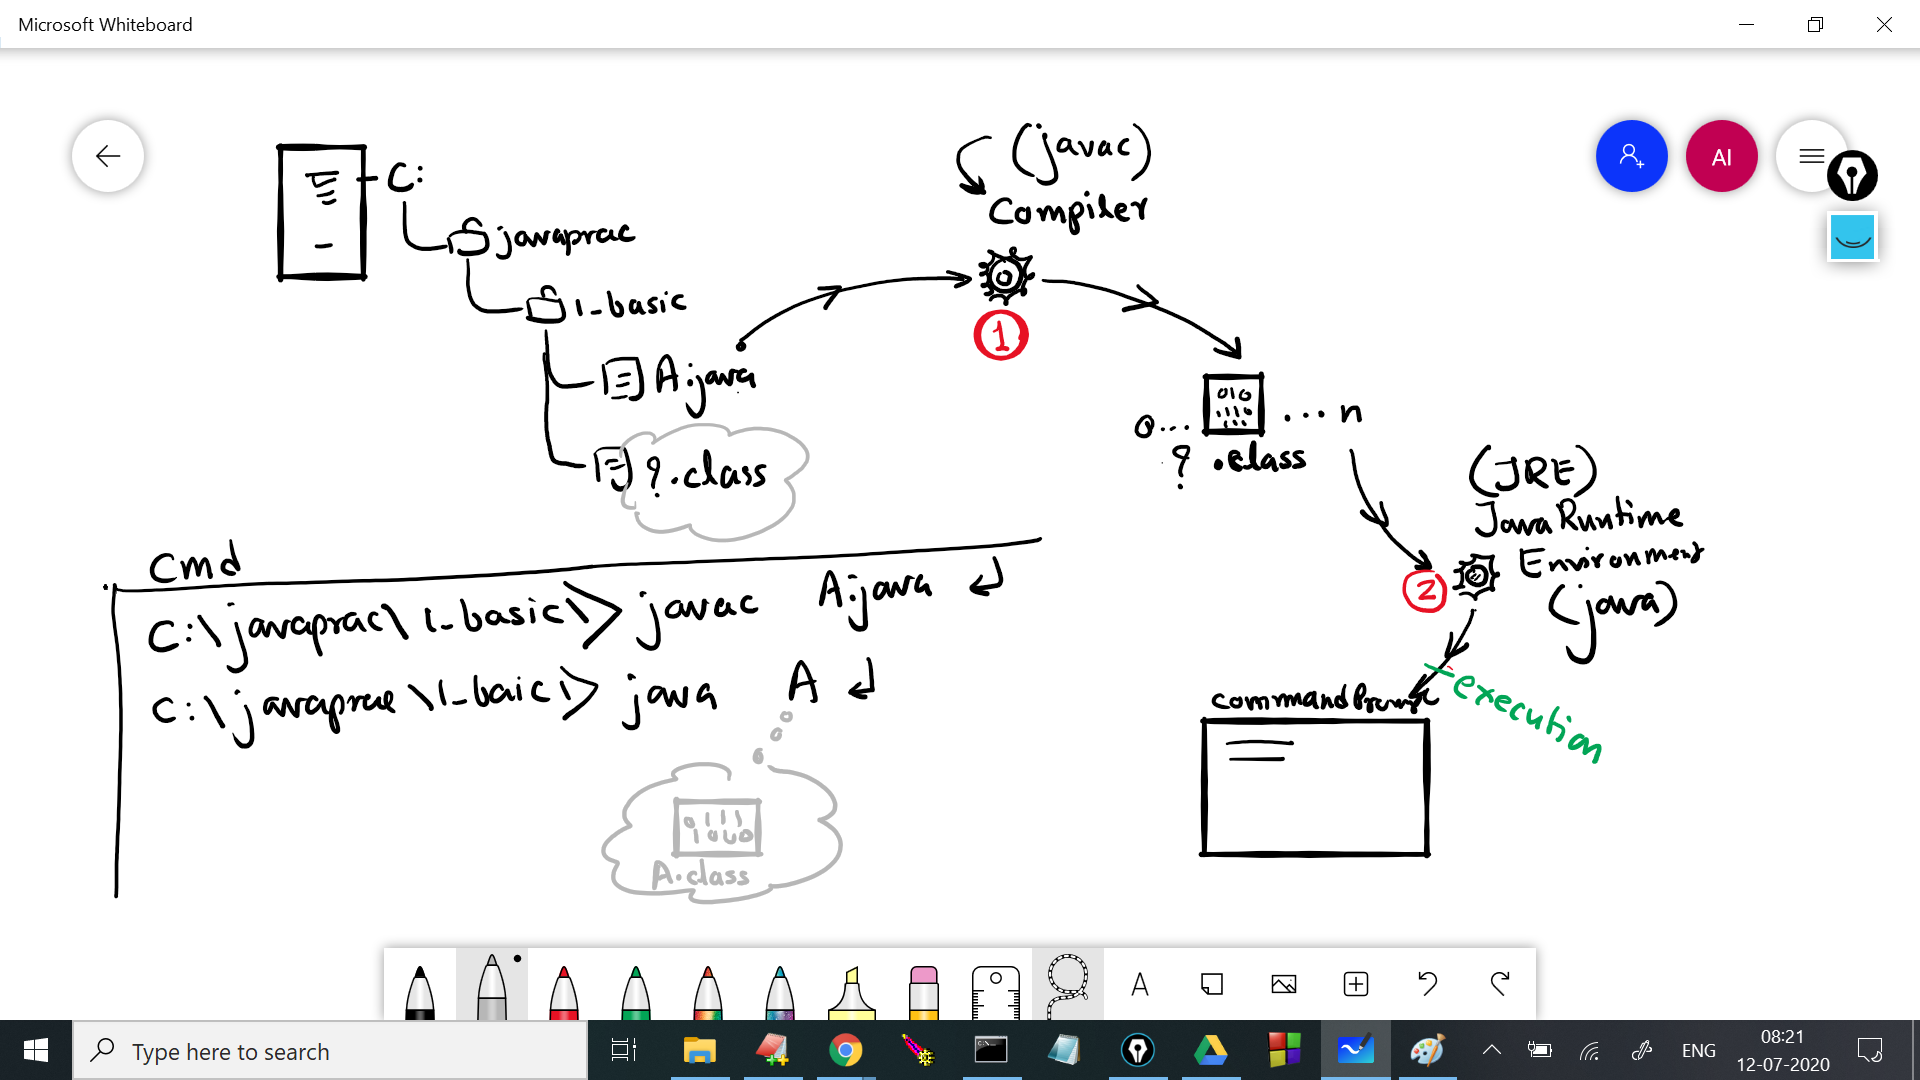 Microsoft Whiteboard
C:
javaprac
1_basic
A.java
?.class
(javac)
Compiler
1
AI
010
1110
0... ...n
? .class
(JRE)
Java Runtime
Environment
(java)
2
execution
Cmd
C:\javaprac\1_basic\> javac A.java
C:\javaprac\1_baic\> java A
A.class
A
Type here to search
ENG
08:21
12-07-2020